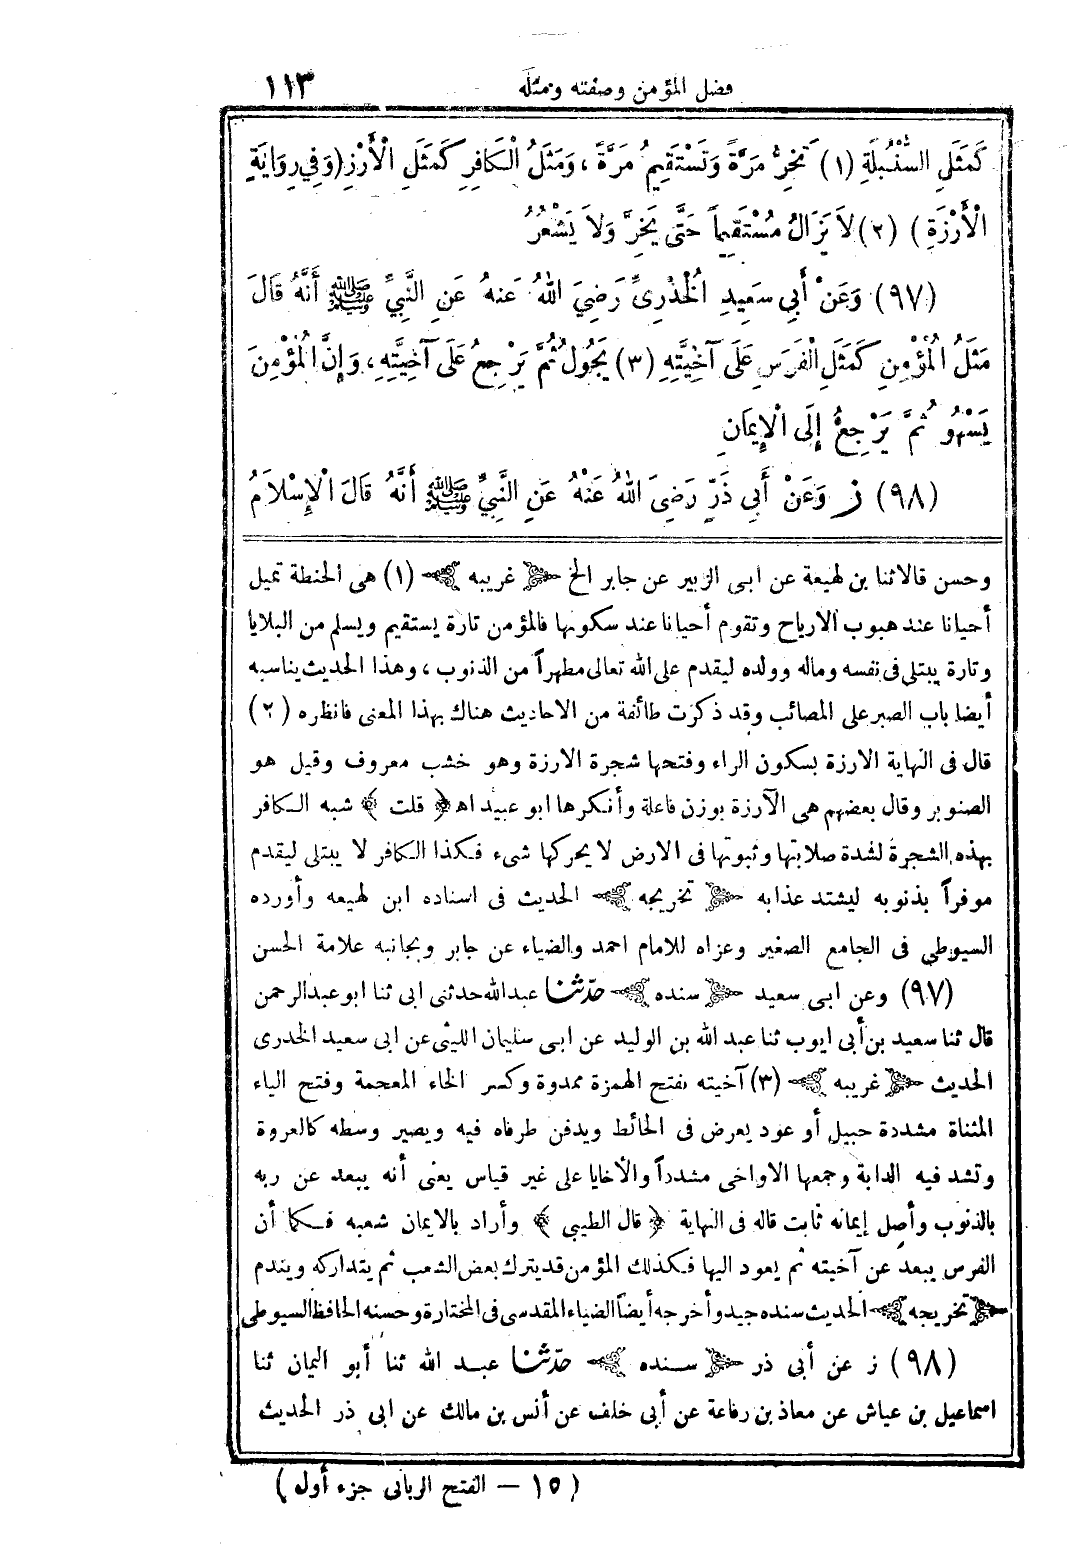 فضل المؤمن وصفته ومثله ١١٣
كَمَثَلِ السُّنْبُلَةِ (١) تَخِرُّ مَرَّةً وَتَسْتَقِيمُ مَرَّةً ، وَمَثَلُ الْكَافِرِ كَمَثَلِ الْأَرْزِ (وَفِي رِوَايَةٍ
الْأَرْزَةِ) (٢) لاَ يَزَالُ مُسْتَقِيماً حَتَّى يَخِرَّ وَلاَ يَشْعُرُ
(٩٧) وَعَنْ أَبِي سَعِيدِ الْخُدْرِىِّ رَضِيَ اللهُ عَنهُ عَنِ النَّبِيِّ ﷺ أَنَّهُ قَالَ
مَثَلُ الْمُؤْمِنِ كَمَثَلِ الْفَرَسِ عَلَى آخِيَّتِهِ (٣) يَجُولُ ثُمَّ يَرْجِعُ عَلَى آخِيَّتِهِ ، وَإِنَّ الْمُؤْمِنَ
يَسْهُو ثُمَّ يَرْجِعُ إِلَى الْإِيمَانِ
(٩٨) ز وَعَنْ أَبِي ذَرٍّ رَضِيَ اللهُ عَنْهُ عَنِ النَّبِيِّ ﷺ أَنَّهُ قَالَ الْإِسْلَامُ
وحسن قالاثنا بن لهيعة عن ابى الزبير عن جابر الخ ﴿ غريبه ﴾ (١) هى الحنطة تميل
أحيانا عند هبوب الارياح وتقوم أحيانا عند سكونها فالمؤمن تارة يستقيم ويسلم من البلايا
وتارة يبتلى فى نفسه وماله وولده ليقدم على الله تعالى مطهراً من الذنوب ، وهذا الحديث يناسبه
أيضا باب الصبر على المصائب وقد ذكرت طائفة من الاحاديث هناك بهذا المعنى فانظره (٢)
قال فى النهاية الارزة بسكون الراء وفتحها شجرة الارزة وهو خشب معروف وقيل هو
الصنوبر وقال بعضهم هى الآرزة بوزن فاعلة وأنكرها ابو عبيد اهـ ﴿ قلت ﴾ شبه الكافر
بهذه الشجرة لشدة صلابتها وثبوتها فى الارض لا يحركها شىء فكذا الكافر لا يبتلى ليقدم
موفراً بذنوبه ليشتد عذابه ﴿ تخريجه ﴾ الحديث فى اسناده ابن لهيعه وأورده
السيوطى فى الجامع الصغير وعزاه للامام احمد والضياء عن جابر وبجانبه علامة الحسن
(٩٧) وعن ابى سعيد ﴿ سنده ﴾ حدّثنا عبدالله حدثنى ابى ثنا ابو عبدالرحمن
قال ثنا سعيد بن أبى ايوب ثنا عبد الله بن الوليد عن ابى سليمان الليثى عن ابى سعيد الخدرى
الحديث ﴿ غريبه ﴾ (٣) آخيته بفتح الهمزة ممدوة وكسر الخاء المعجمة وفتح الياء
المثناة مشددة حبيل أو عود يعرض فى الحائط ويدفن طرفاه فيه ويصير وسطه كالعروة
وتشد فيه الدابة وجمعها الاواخى مشدداً والأخايا على غير قياس يعنى أنه يبعد عن ربه
بالذنوب وأصل إيمانه ثابت قاله فى النهاية ﴿ قال الطيبى ﴾ وأراد بالايمان شعبه فكما أن
الفرس يبعد عن آخيته ثم يعود اليها فكذلك المؤمن قديترك بعض الشعب ثم يتداركه ويندم
﴿ تخريجه ﴾ الحديث سنده جيد وأخرجه أيضاً الضياء المقدسى فى المختارة وحسنه الحافظ السيوطى
(٩٨) ز عن أبى ذر ﴿ سنده ﴾ حدّثنا عبد الله ثنا أبو اليمان ثنا
اسماعيل بن عياش عن معاذ بن رفاعة عن أبى خلف عن أنس بن مالك عن ابى ذر الحديث
(١٥ — الفتح الربانى جزء أول)